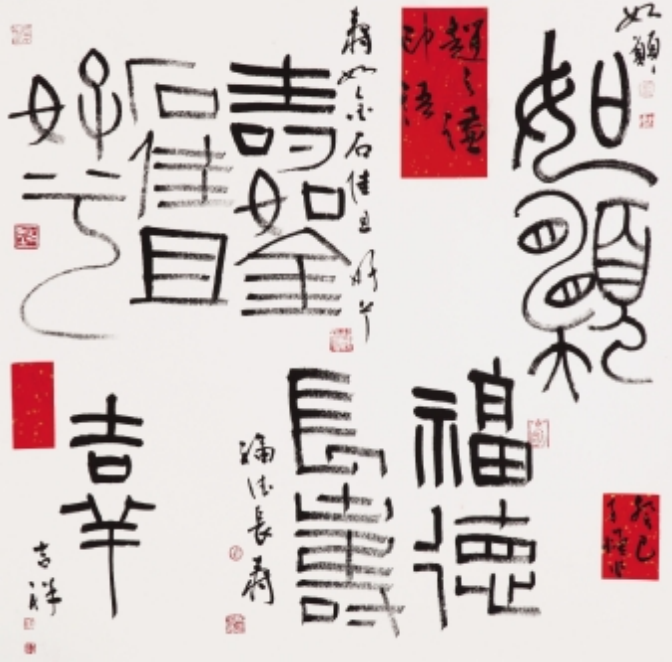 如願
如願
趙之謙
印語
壽如金石佳且好兮
壽如金
石佳且
好兮
癸巳
福德
長壽
福德長壽
吉羊
吉祥